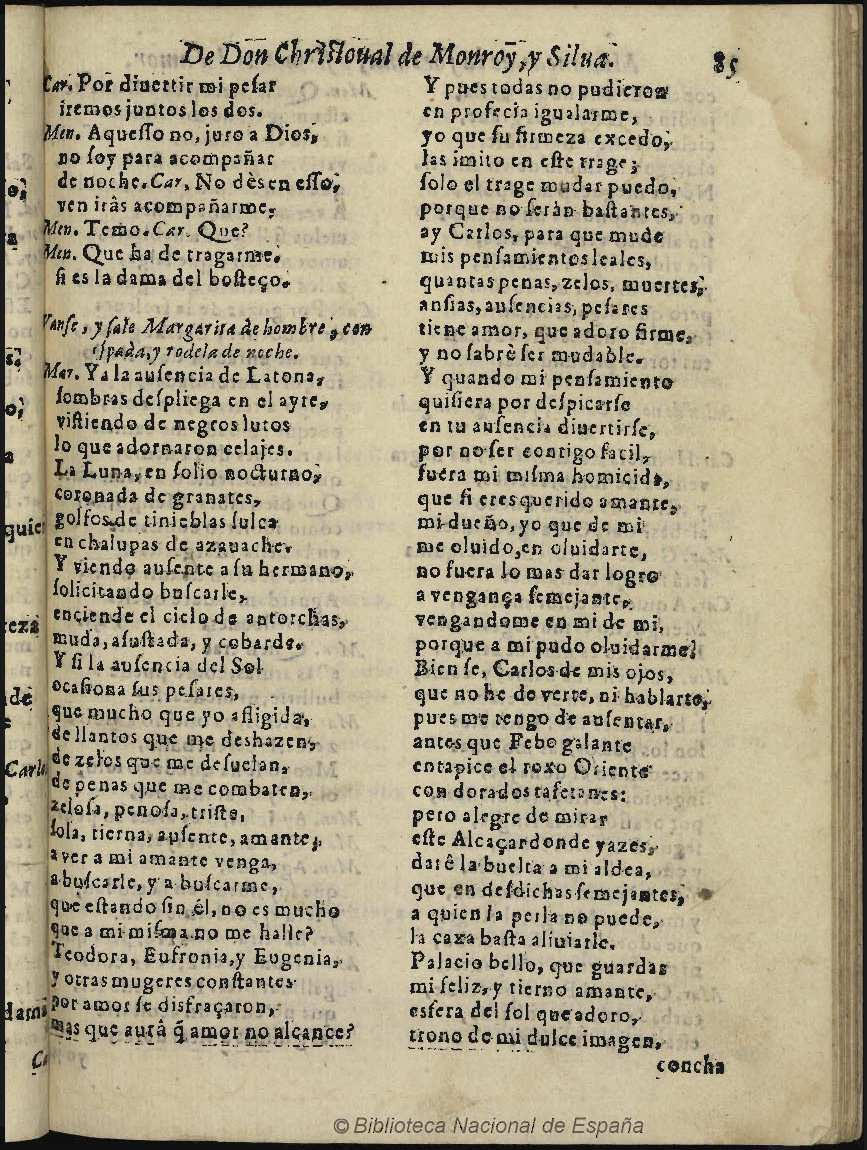 De Don Christoual de Monroy, y Silua. 85
Car. Por diuertir mi pesar
iremos juntos los dos.
Men. Aquesso no, juro a Dios,
no soy para acompañar
de noche. Car. No dès en esso,
ven iràs acompañarme,
Men. Temo. Car. Que?
Men. Que ha de tragarme.
si es la dama del bosteço.
Vanse, y sale Margarita de hombre, con
espada, y rodela de noche.
Mar. Ya la ausencia de Latona,
sombras despliega en el ayre,
vistiendo de negros lutos
lo que adornaron celajes.
La Luna, en solio nocturno,
coronada de granates,
golfos de tinieblas sulca
en chalupas de azauache.
Y viendo ausente a su hermano,
solicitando buscarle,
enciende el cielo de antorchas,
muda, asustada, y cobarde.
Y si la ausencia del Sol
ocasiona sus pesares,
que mucho que yo afligida,
de llantos que me deshazen,
de zelos que me desuelan,
de penas que me combaten,
zelosa, penosa, triste,
sola, tierna, ausente, amante,
a ver a mi amante venga,
a buscarle, y a buscarme,
que estando sin èl, no es mucho
que a mi misma no me halle?
Teodora, Eufronia, y Eugenia,
y otras mugeres constantes
por amor se disfraçaron,
mas que aurà q̃ amor no alcance?
Y pues todas no pudieron
en profecia igualarme,
yo que su firmeza excedo,
las imito en este trage;
solo el trage mudar puedo,
porque no seràn bastantes,
ay Carlos, para que mude
mis pensamientos leales,
quantas penas, zelos, muertes,
ansias, ausencias, pesares
tiene amor, que adoro firme,
y no sabrè ser mudable.
Y quando mi pensamiento
quisiera por despicarse
en tu ausencia diuertirse,
por no ser contigo facil,
fuera mi misma homicida,
que si eres querido amante,
mi dueño, yo que de mi
me oluido, en oluidarte,
no fuera lo mas dar logro
a vengança semejante,
vengandome en mi de mi,
porque a mi pudo oluidarme?
Bien se, Carlos de mis ojos,
que no he de verte, ni hablarte,
pues me tengo de ausentar,
antes que Febo galante
entapice el roxo Oriente
con dorados tafetanes:
pero alegre de mirar
este Alcaçar donde yazes,
darè la buelta a mi aldea,
que en desdichas semejantes,
a quien la perla no puede,
la caxa basta aliuiarle.
Palacio bello, que guardas
mi feliz, y tierno amante,
esfera del sol que adoro,
trono de mi dulce imagen,
concha
© Biblioteca Nacional de España